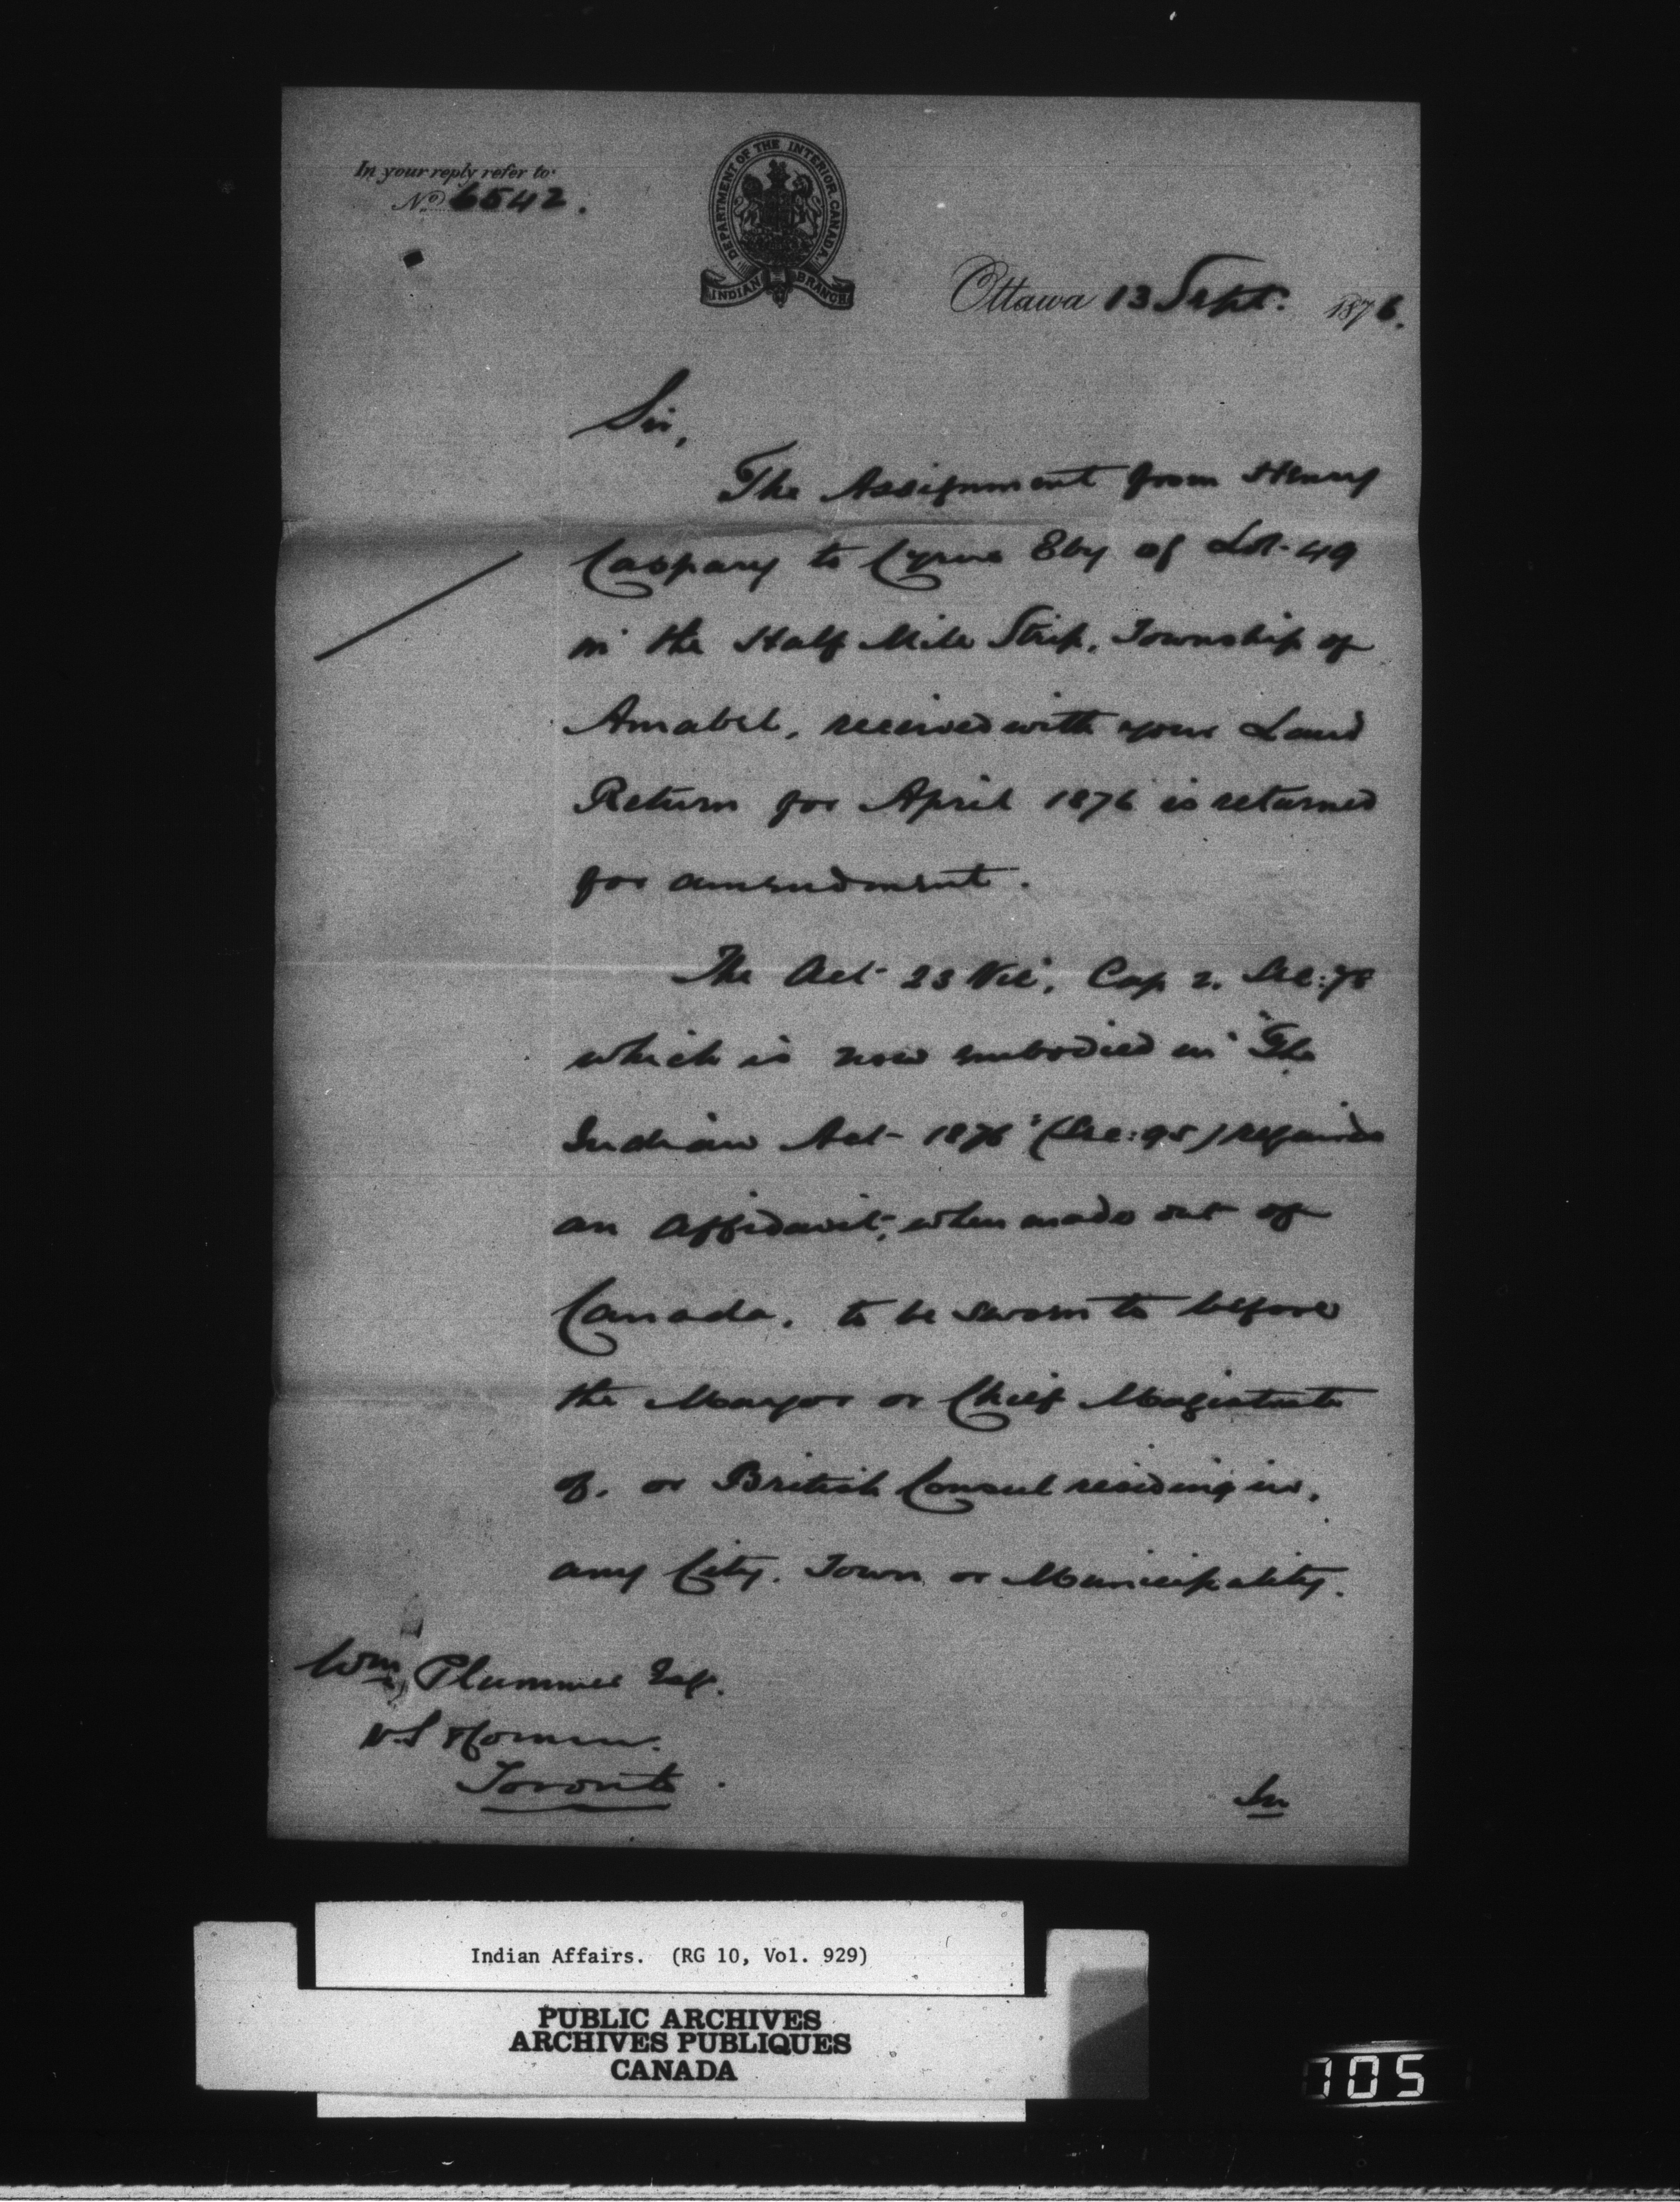 In your reply refer to
No 6542.
DEPARTMENT OF THE INTERIOR. CANADA.
INDIAN BRANCH
Ottawa 13 Sept. 1876.
Sir,
The Assignment from Henry
Caspary to Cyrus Eby of Lot 49
in the Half Mile Strip, Township of
Amabel, received with your Land
Return for April 1876 is returned
for amendment.
The Act 23 Vic, Cap 2. Sec: 78
which is now embodied in "The
Indian Act 1876" (Sec: 95) requires
an Affidavit, when made out of
Canada, to be sworn to before
the Mayor or Chief Magistrate
of, or British Consul residing in,
any City, Town or Municipality.
Wm Plummer Esq.
Toronto.
In
Indian Affairs. (RG 10, Vol. 929)
PUBLIC ARCHIVES
ARCHIVES PUBLIQUES
CANADA
705